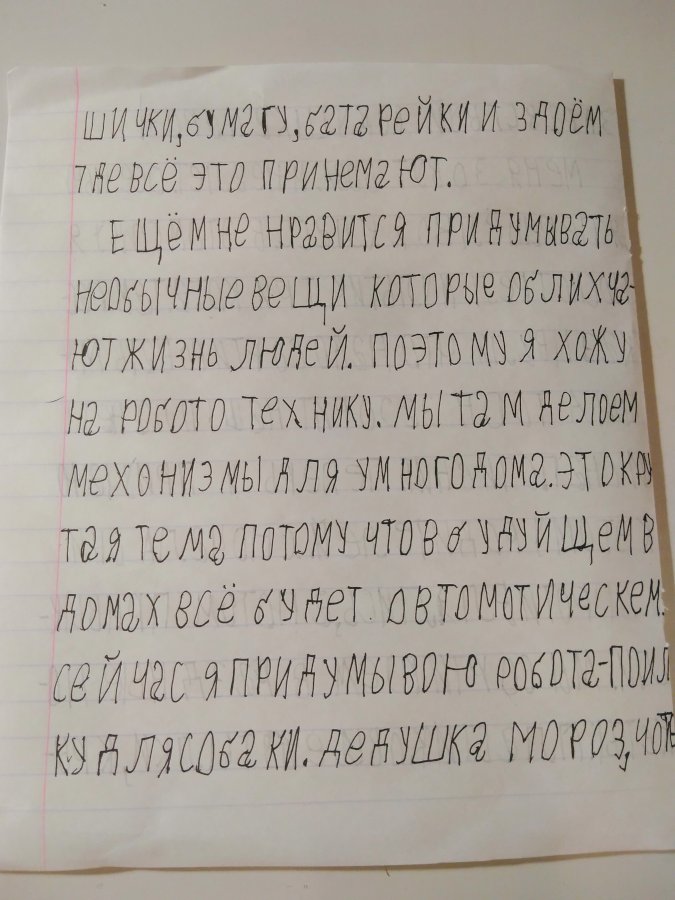 шички, бумагу, батарейки и здоём
где всё это принемают.
Ещё мне нравится придумывать
необычные вещи которые облихча-
ют жизнь людей. Поэтому я хожу
на робото технику. мы там делоем
мехонизмы для умного дома. Это кру
тая тема потому что в будуйщем в
домах всё будет овтомотическем.
сейчас я придумывою робота-поил
ку для собаки. Дедушка мороз, хоть